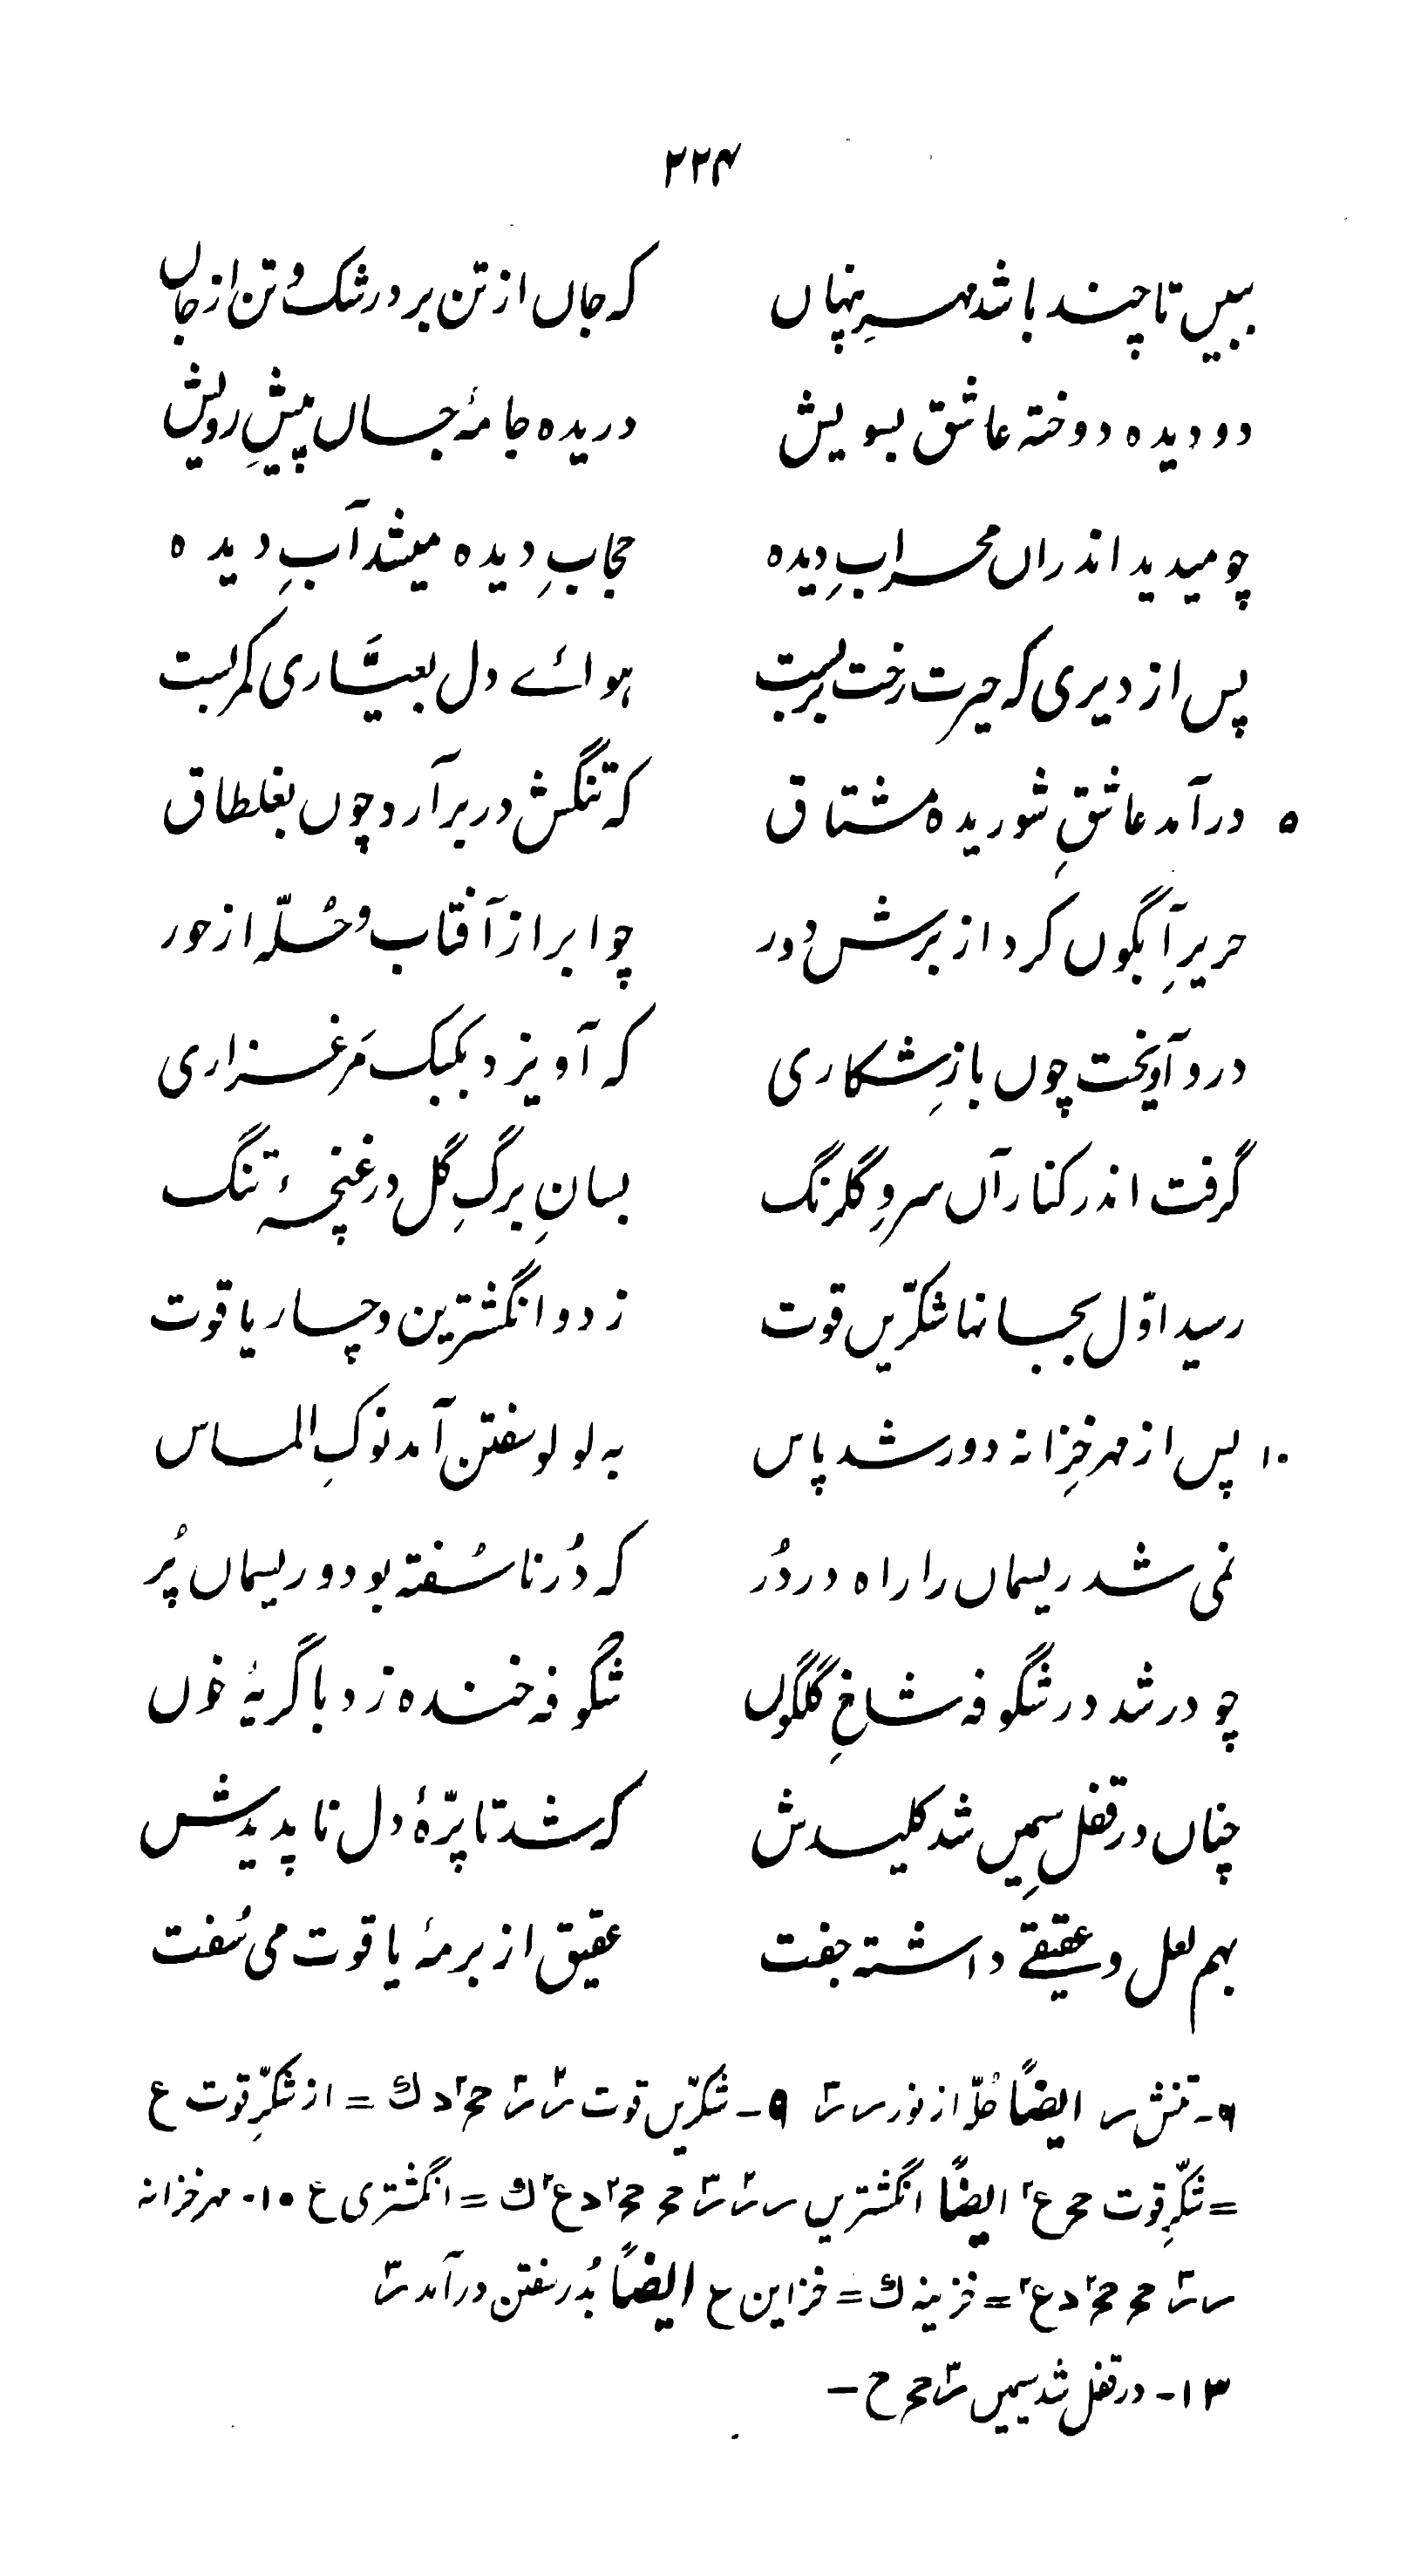 ۲۲۴
ببیں تا چند باشد مہرِ نہاں کہ جاں از تن برد رشک و تن از جاں
دو دیدہ دوختہ عاشق بسویش دریدہ جامۂ جاں پیشِ رویش
چو میدید اندراں محرابِ دیدہ حجابِ دیدہ میشد آبِ دیدہ
پس از دیری کہ حیرت رخت بربست ہوائے دل بعیّاری کمر بست
۵ درآمد عاشقِ شوریدہ مشتاق کہ تنگش در بر آرد چوں بغلطاق
حریرِ آبگوں کرد از برش دور چو ابر از آفتاب و حُلّہ از حور
درو آویخت چوں بازِ شکاری کہ آویزد بکبک مَرغزاری
گرفت اندر کنار آں سروِ گلرنگ بسانِ برگِ گل در غنچۂ تنگ
رسید اوّل بجانہا شکرّیں قوت ز دو انگشترین و چار یاقوت
۱۰ پس از مہرِ خزانہ دور شد پاس بہ لولو سفتن آمد نوکِ الماس
نمی شد ریسماں را راہ در دُر کہ دُر ناسُفتہ بود و ریسماں پُر
چو در شد در شگوفہ شاخِ گلگوں شگوفہ خندہ زد با گریۂ خوں
چناں در قفلِ سیمیں شد کلیدش کہ شد تا پرّۂ دل ناپدیدش
بہم لعل و عقیقے داشتہ جفت عقیق از برمۂ یاقوت می سُفت
۶- تنش س ایضاً حُلّہ از نور س ۹- شکرّیں قوت = از شکّرِ قوت ع
= شکّرِ قوت ایضاً انگشتریں = انگشتری ع ۱۰- مہر خزانہ
= خزینہ ك = خزاین ح ایضاً بدُر سفتن درآمد
۱۳- در قفل شد سیمیں